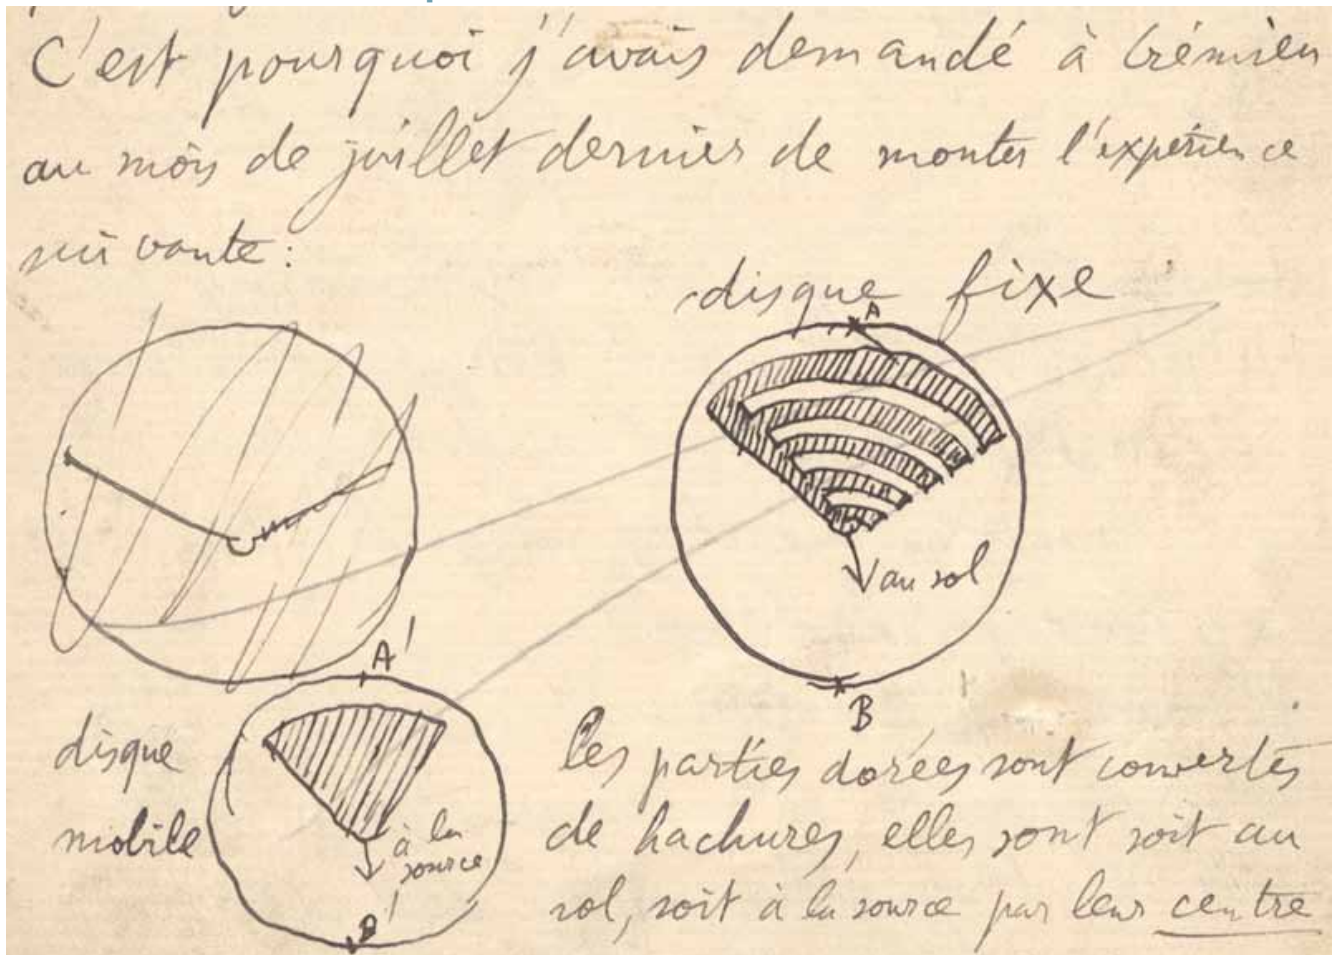 C'est pourquoi j'avais demandé à Crémieu
au mois de juillet dernier de monter l'expérience
suivante:
disque fixe
A
au sol
B
A'
disque
mobile
à la
source
B'
les parties dorées sont couvertes
de hachures, elles sont soit au
sol, soit à la source par leur centre